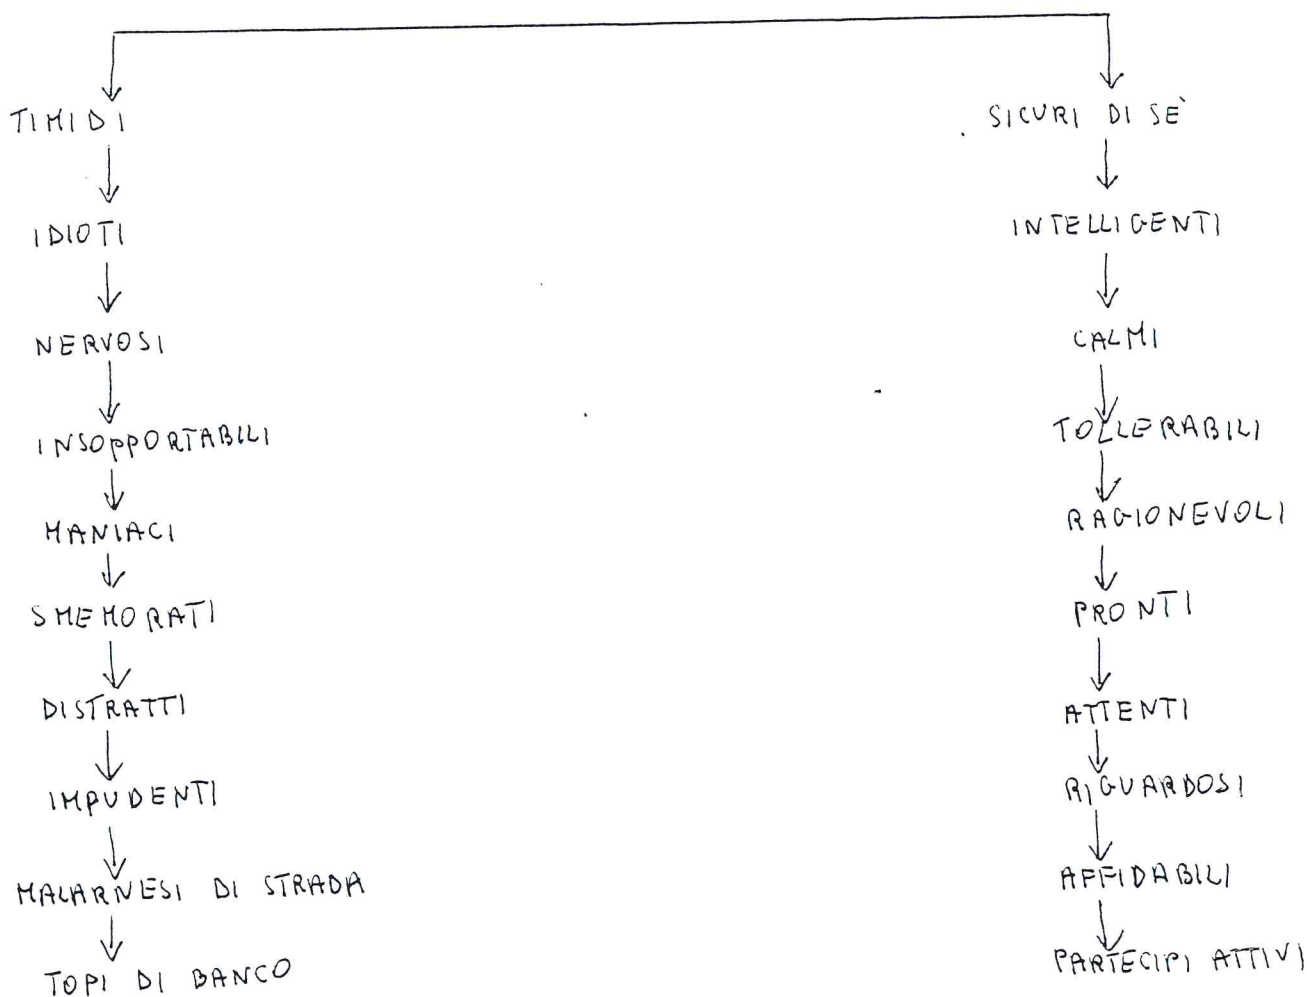 TIMIDI
IDIOTI
NERVOSI
INSOPPORTABILI
MANIACI
SMEMORATI
DISTRATTI
IMPUDENTI
MALARNESI DI STRADA
TOPI DI BANCO
SICURI DI SÈ
INTELLIGENTI
CALMI
TOLLERABILI
RAGIONEVOLI
PRONTI
ATTENTI
RIGUARDOSI
AFFIDABILI
PARTECIPI ATTIVI